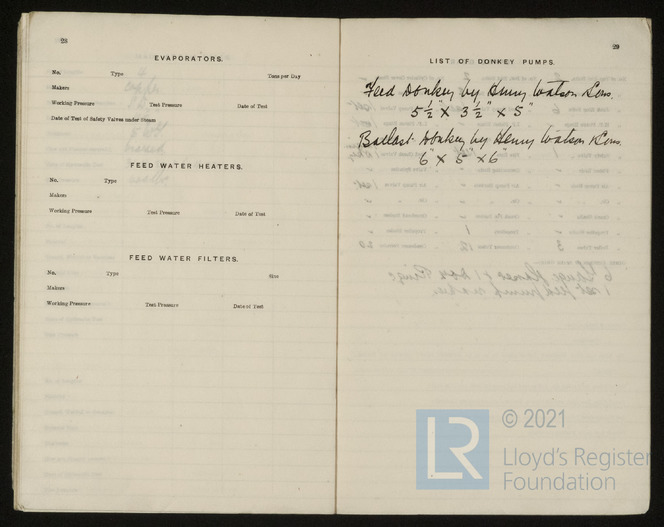 28
EVAPORATORS.
No. Type Tons per Day
Makers
Working Pressure Test Pressure Date of Test
Date of Test of Safety Valves under Steam
FEED WATER HEATERS.
No. Type
Makers
Working Pressure Test Pressure Date of Test
FEED WATER FILTERS.
No. Type Size
Makers
Working Pressure Test Pressure Date of Test
29
LIST OF DONKEY PUMPS.
Feed Donkey by Henry Watson & Sons.
5 1/2" x 3 1/2" x 5"
Ballast Donkey by Henry Watson & Sons.
6" x 6" x 6"
LR
© 2021
Lloyd's Register
Foundation